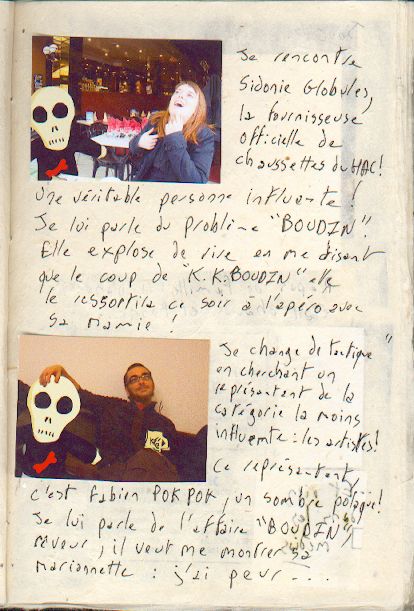 Je rencontre
Sidonie Globules,
la fournisseuse
officielle de
chaussettes du HAC!
Une véritable personne influente!
Je lui parle du problème "BOUDIN".
Elle explose de rire en me disant
que le coup de "K.K.BOUDIN" elle
le ressortira ce soir à l'apéro avec
sa mamie!
Je change de tactique
en cherchant un
représentant de la
catégorie la moins
influente : les artistes!
Ce représentant,
c'est Fabien POK POK, un sombre polaque!
Je lui parle de l'affaire "BOUDIN",
rêveur, il veut me montrer sa
marionnette : j'ai peur...